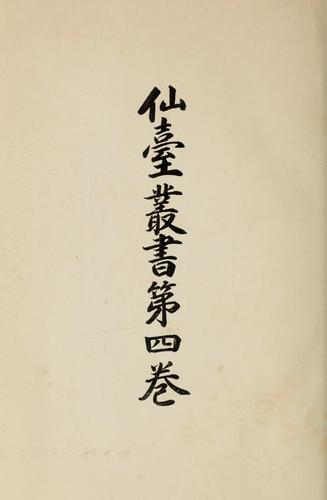 仙臺叢書第四巻